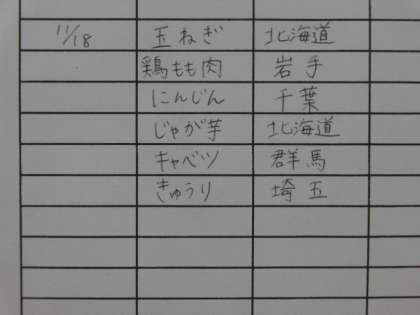 11/18 玉ねぎ 北海道
鶏もも肉 岩手
にんじん 千葉
じゃが芋 北海道
キャベツ 群馬
きゅうり 埼玉